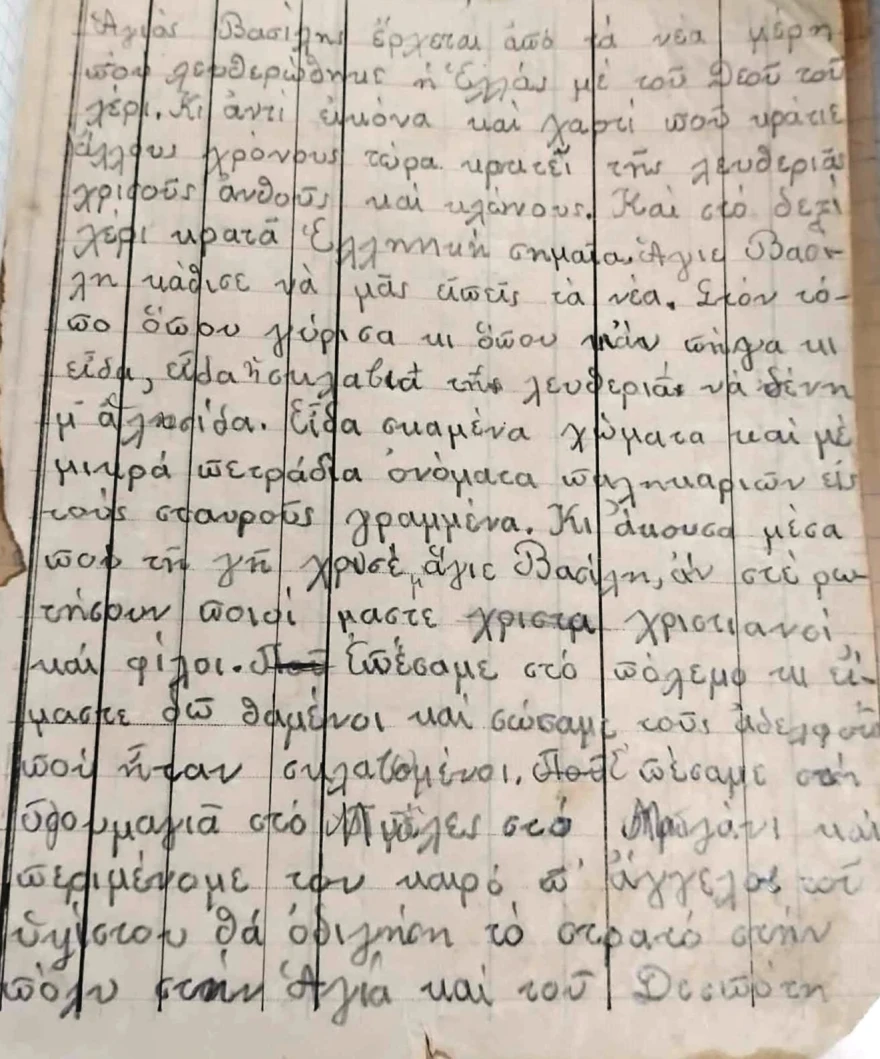 Ἁγιὸς Βασίλης ἔρχεται ἀπὸ τὰ νέα μέρη
ποὺ λευθερώθηκε ἡ Ἑλλάς μὲ τοῦ Θεοῦ τοῦ
χέρι. Κι ἀντὶ εἰκόνα καὶ χαρτί ποῦ κράτιε
ἄλλους χρόνους τώρα κρατεῖ τῆς λευθεριᾶς
χρισοῦς ἀνθοῦς καὶ κλώνους. Καὶ στό δεξὶ
χέρι κρατᾶ Ἑλληνική σημαῖα. Ἅγιε Βασί-
λη κάθισε νὰ μᾶς εἰπεῖς τὰ νέα. Στόν τό-
πο ὅπου γύρισα κι ὅπου πῆγα κι
εἶδα, εἶδα ἡ σκλαβιά τῆς λευθεριᾶς νὰ δένη
μ' ἁλυσίδα. Εἶδα σκαμένα χώματα καὶ μὲ
μικρά πετράδια ὀνόματα παληκαριῶν εἰς
τοὺς σταυροῦς γραμμένα. Κι ἄκουσα μέσα
ποὺ τῆ γῆ χρυσέ μ ἅγιε Βασίλη, ἀν στέ ρω-
τήσουν ποιοί μαστε χριστα χριστιανοί
καὶ φίλοι. Ποῦ Ἐπέσαμε στό πόλεμο κι εἴ-
μαστε δῶ θαμένοι καὶ σώσαμε τοὺς ἀδελφοῦς
ποὺ ἤταν σκλαβομένοι. Ποῦ Ἐπέσαμε στὴ
στό στό καὶ
περιμένομε τον καιρό π' ἄγγελος τοῦ
ὑψίστου θά ὁδιγήση τὸ στρατό στήν
πόλυ στήν Ἁγιά καὶ τοῦ Δεσπότη